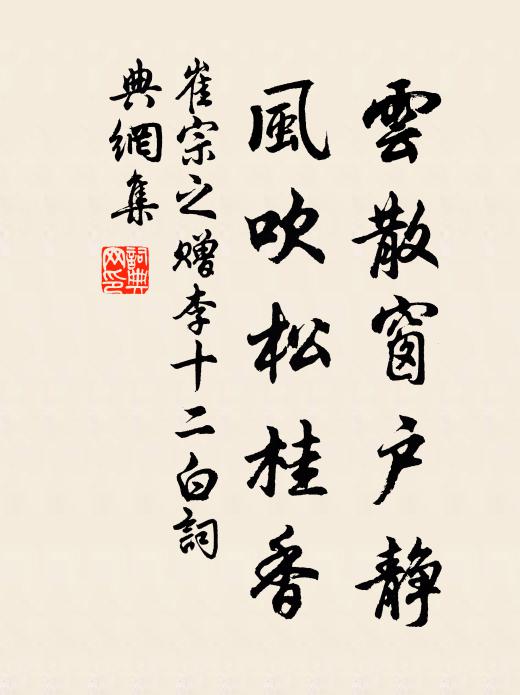 雲散窗户静
風吹松桂香
崔宗之赠李十二白詞
典網集
詞典
网印